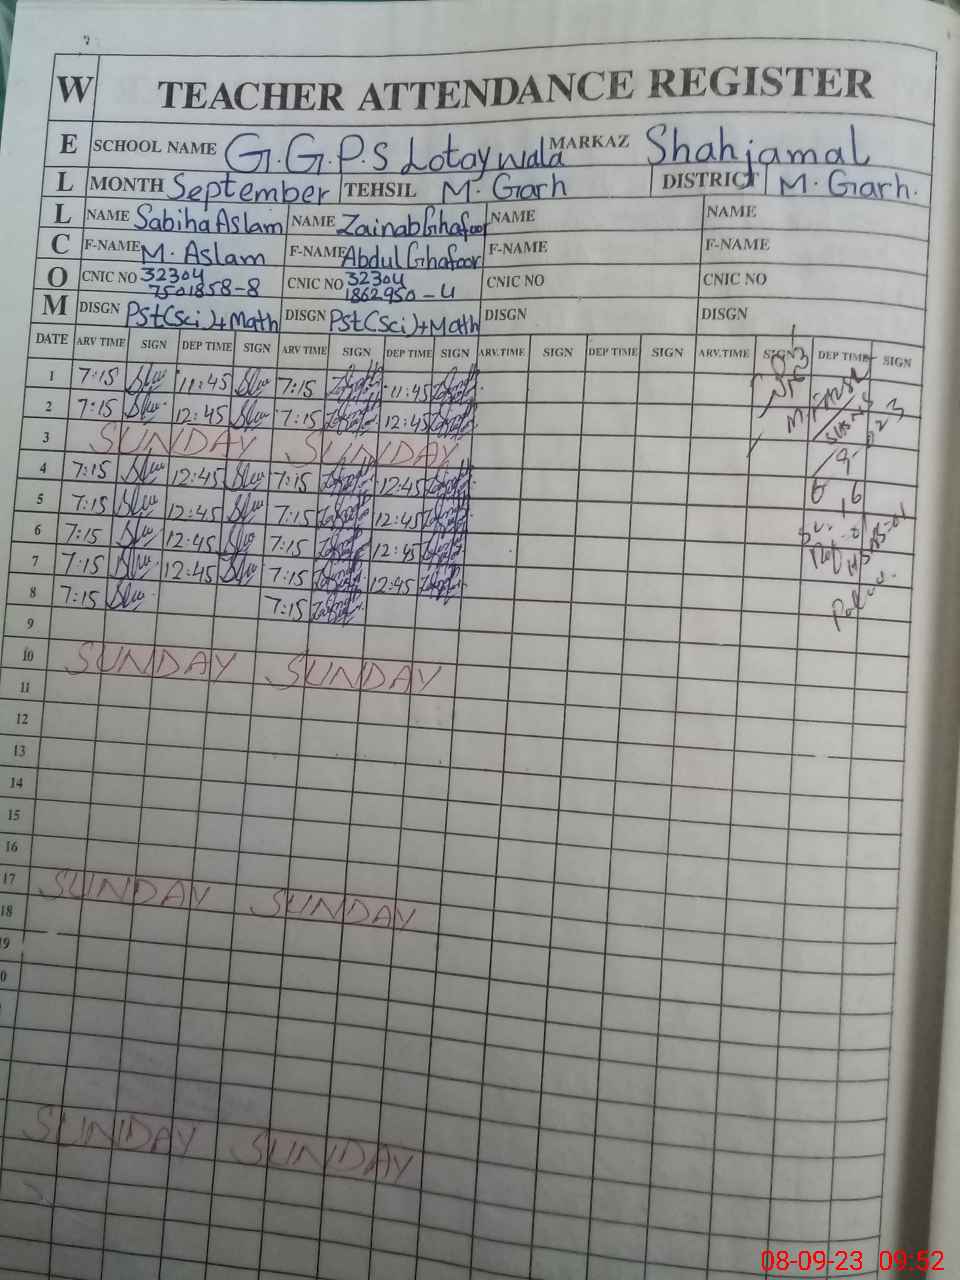 WELLCOM
TEACHER ATTENDANCE REGISTER
SCHOOL NAME G.G.P.S Lotaywala MARKAZ Shahjamal
MONTH September TEHSIL M. Garh DISTRICT M. Garh.
NAME Sabiha Aslam NAME Zainab Ghafoor NAME NAME
F-NAME M. Aslam F-NAME Abdul Ghafoor F-NAME F-NAME
CNIC NO 32304 7501858-8 CNIC NO 32304 1862950-4 CNIC NO CNIC NO
DISGN Pst(Sci)+Math DISGN Pst(Sci)+Math DISGN DISGN
DATE ARV TIME SIGN DEP TIME SIGN ARV TIME SIGN DEP TIME SIGN ARV.TIME SIGN DEP TIME SIGN ARV.TIME SIGN DEP TIME SIGN
1 7:15 11:45 7:15 11:45
2 7:15 12:45 7:15 12:45
3 SUNDAY SUNDAY
4 7:15 12:45 7:15 12:45
5 7:15 12:45 7:15 12:45
6 7:15 12:45 7:15 12:45
7 7:15 12:45 7:15 12:45
8 7:15 7:15
9
10 SUNDAY SUNDAY
11
12
13
14
15
16
17 SUNDAY SUNDAY
18
9
0
SUNDAY SUNDAY
08-09-23 09:52